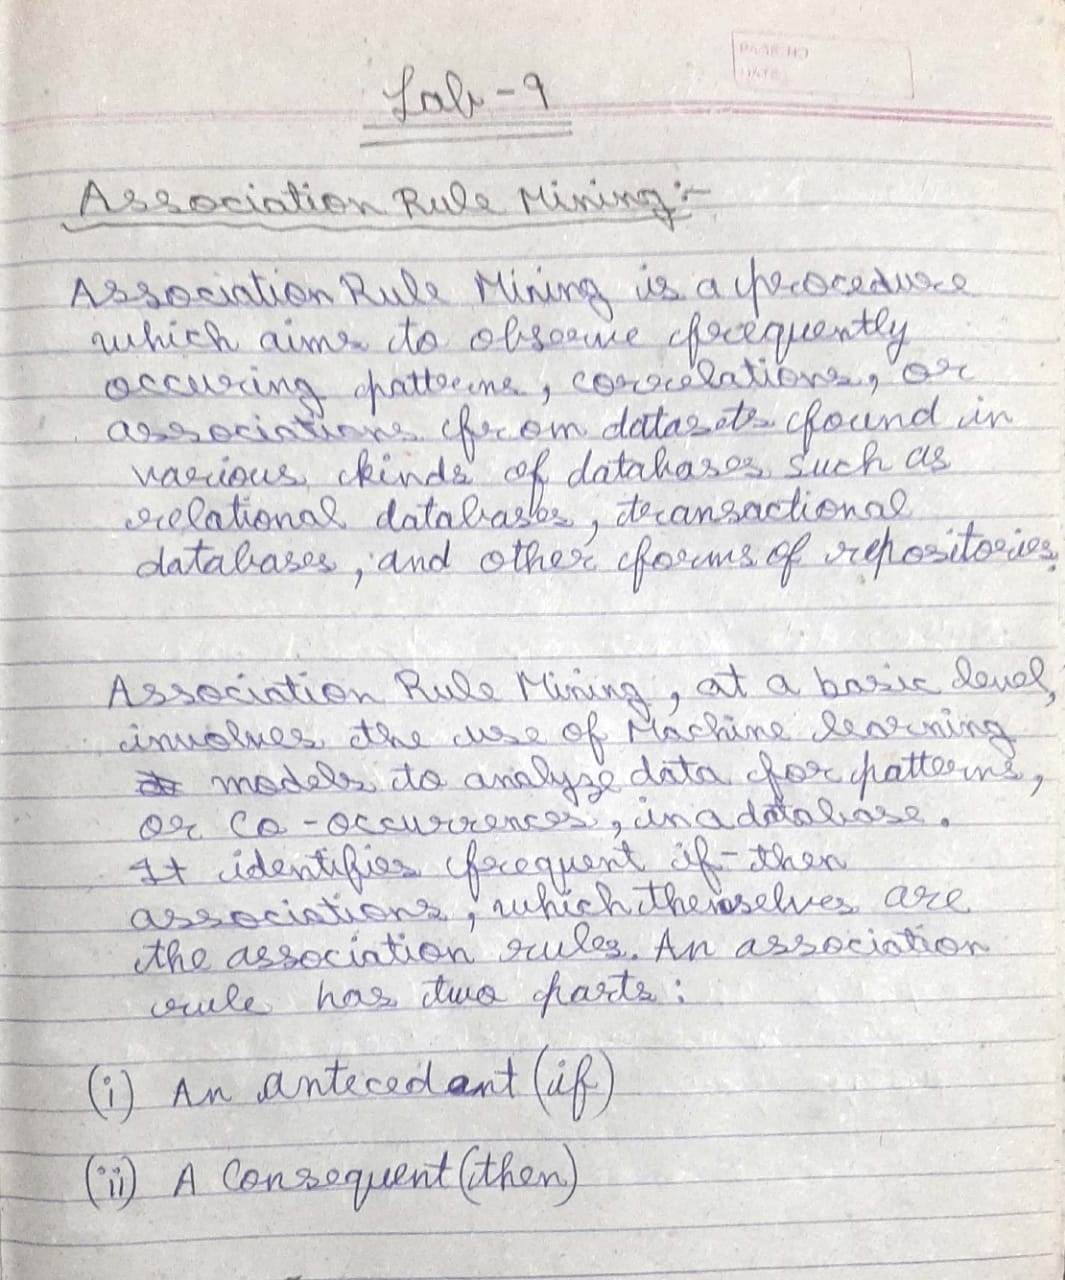 PAGE NO
DATE
Lab-9
Association Rule Mining:-
Association Rule Mining is a procedure
which aims to observe frequently
occuring patterns, correlations, or
associations from datasets found in
various kinds of databases such as
relational databases, transactional
databases, and other forms of repositories.
Association Rule Mining, at a basic level,
involves the use of Machine learning
models to analyze data for patterns,
or Co-occurrences, in a database.
It identifies frequent if-then
associations, which themselves are
the association rules. An association
rule has two parts:
(i) An antecedant (if)
(ii) A Consequent (then)